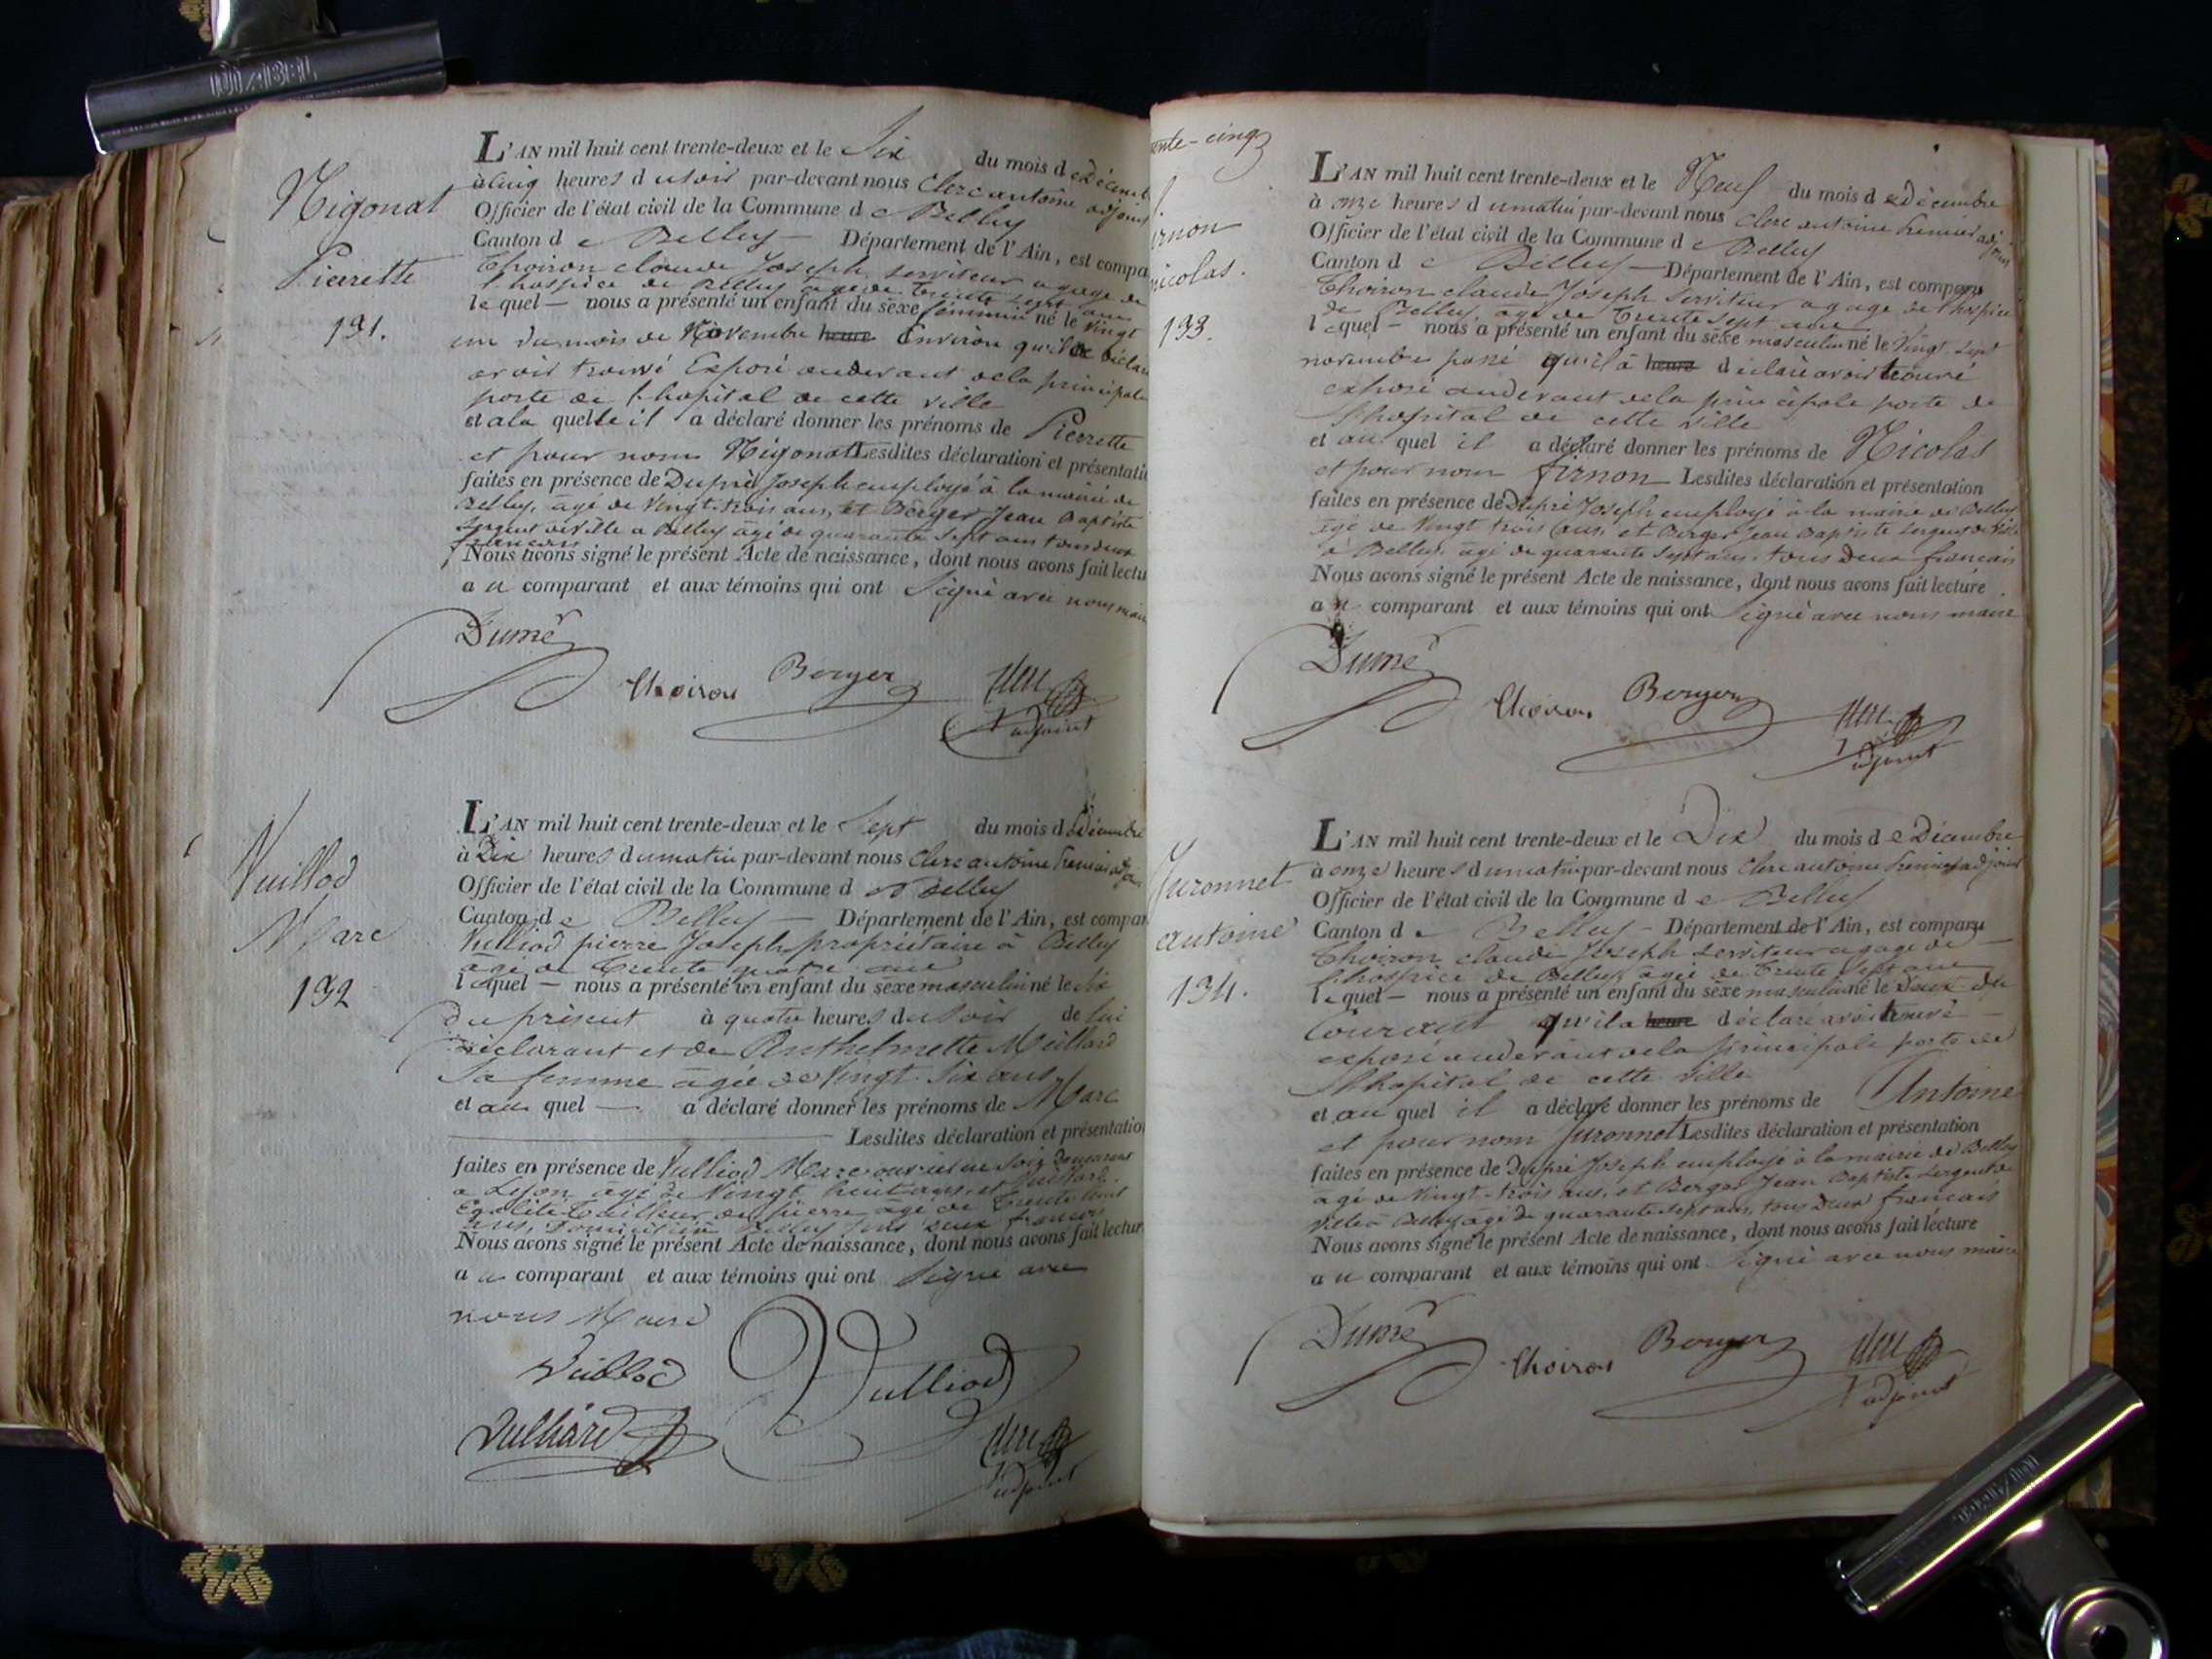 Nigonat
Pierrette
131.
L'AN mil huit cent trente-deux et le Six du mois de Décemb
à Cinq heures du soir par-devant nous Clerc antoine adjoint
Officier de l'état civil de la Commune de Belley
Canton de Belley — Département de l'Ain, est compa
Thoiron claude Joseph serviteur a gage de
l'hospice de Belley agé de Trente sept ans
lequel — nous a présenté un enfant du sexe feminin né le Vingt
un du mois de Novembre heure Environ qu'il a déclaré
avoir trouvé Exposé audevant de la principale
porte de l'hopital de cette ville
et a la quelle il a déclaré donner les prénoms de Pierrette
et pour nom Nigonat Lesdites déclaration et présentatio
faites en présence de Dupré Joseph employé à la mairie de
Belley, âgé de Vingt-trois ans, et Berger Jean Baptiste
Sergent de Ville a Belley âgé de quarante Sept ans tous deux
français
Nous avons signé le présent Acte de naissance, dont nous avons fait lectu
au comparant et aux témoins qui ont Signé avec nous maire
Dumé
Thoiron Berger Clerc
adjoint
Vuillod
Marc
132
L'AN mil huit cent trente-deux et le Sept du mois de Décembre
à Dix heures du matin par-devant nous Clerc antoine Premier adjoi
Officier de l'état civil de la Commune de Belley
Canton de Belley — Département de l'Ain, est compar
Vulliod pierre Joseph propriétaire à Belley
âgé de Trente quatre ans
lequel — nous a présenté un enfant du sexe masculin né le Six
du présent à quatre heures du Soir de lui
déclarant et de Anthelmette Meillard
Sa femme âgée de Vingt Six ans
et au quel — a déclaré donner les prénoms de Marc
Lesdites déclaration et présentation
faites en présence de Vulliod Marc ouvrier en Soie demeurant
a Lyon âgé de Vingt huit ans, et
Tailleur de pierre agé de Trente
ans, Belley tous deux français
Nous avons signé le présent Acte de naissance, dont nous avons fait lectur
au comparant et aux témoins qui ont Signé avec
nous Maire
Vuillod Vulliod
Clerc
adjoint
ente-cinq
irnon
nicolas.
133.
L'AN mil huit cent trente-deux et le Neuf du mois de Décembre
à onze heures du matin par-devant nous Clerc antoine Premier adjoint
Officier de l'état civil de la Commune de Belley
Canton de Belley — Département de l'Ain, est comparu
Thoiron claude Joseph Serviteur a gage de l'hospice
de Belley, agé de Trente sept ans
lequel — nous a présenté un enfant du sexe masculin né le Vingt-Sept
novembre passé qu'il a heure déclaré avoir trouvé
exposé audevant de la principale porte de
l'hopital de cette ville
et au quel il a déclaré donner les prénoms de Nicolas
et pour nom firnon Lesdites déclaration et présentation
faites en présence de Dupré Joseph employé à la mairie de Belley
âgé de Vingt trois ans, et Berger Jean Baptiste Sergent de Ville
à Belley, âgé de quarante Sept ans, tous deux français
Nous avons signé le présent Acte de naissance, dont nous avons fait lecture
au comparant et aux témoins qui ont Signé avec nous maire
Dumé
Thoiron Berger Clerc
adjoint
Juronnet
antoine
134.
L'AN mil huit cent trente-deux et le Dix du mois de Décembre
à onze heures du matin par-devant nous Clerc antoine Premier adjoint
Officier de l'état civil de la Commune de Belley
Canton de Belley — Département de l'Ain, est comparu
Thoiron claude Joseph Serviteur a gage de
l'hospice de Belley, agé de Trente Sept ans
lequel — nous a présenté un enfant du sexe masculin né le Deux du
Courant qu'il a heure déclaré avoir trouvé
exposé audevant de la principale porte de
l'hopital de cette Ville
et au quel il a déclaré donner les prénoms de Antoine
et pour nom Juronnet Lesdites déclaration et présentation
faites en présence de Dupré Joseph employé à la mairie de Belley
agé de Vingt-trois ans, et Berger Jean Baptiste Sergent de
ville à Belley âgé de quarante sept ans, tous deux français
Nous avons signé le présent Acte de naissance, dont nous avons fait lécture
au comparant et aux témoins qui ont Signé avec nous maire
Dumé
Thoiron Berger Clerc
adjoint